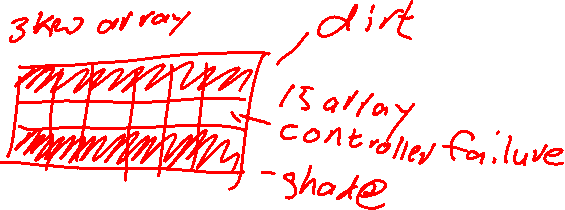 3kw array
dirt
15 array
controller failure
shade